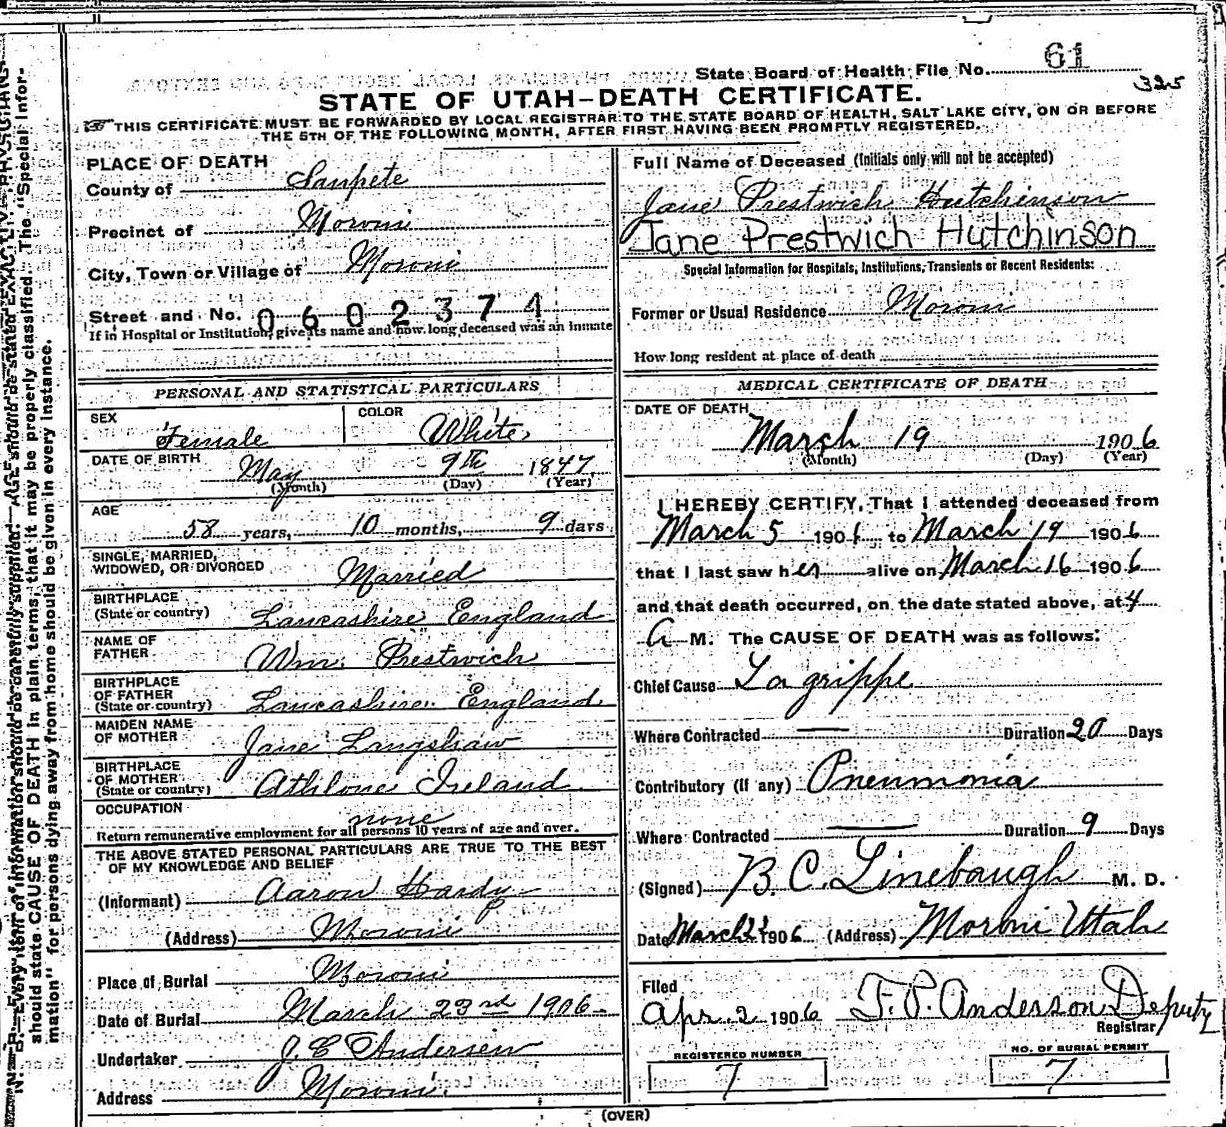 State Board of Health File No. 61
325
STATE OF UTAH–DEATH CERTIFICATE.
THIS CERTIFICATE MUST BE FORWARDED BY LOCAL REGISTRAR TO THE STATE BOARD OF HEALTH, SALT LAKE CITY, ON OR BEFORE
THE 5TH OF THE FOLLOWING MONTH, AFTER FIRST HAVING BEEN PROMPTLY REGISTERED.
PLACE OF DEATH
County of Sanpete
Precinct of Moroni
City, Town or Village of Moroni
Street and No. 0602374
If in Hospital or Institution, give its name and how long deceased was an inmate
PERSONAL AND STATISTICAL PARTICULARS
SEX Female COLOR White
DATE OF BIRTH May 9th 1847
(Month) (Day) (Year)
AGE
58 years, 10 months, 9 days
SINGLE, MARRIED,
WIDOWED, OR DIVORCED Married
BIRTHPLACE
(State or country) Lancashire England
NAME OF
FATHER Wm. Prestwich
BIRTHPLACE
OF FATHER
(State or country) Lancashire England
MAIDEN NAME
OF MOTHER Jane Langshaw
BIRTHPLACE
OF MOTHER
(State or country) Athlone Ireland
OCCUPATION none
Return remunerative employment for all persons 10 years of age and over.
THE ABOVE STATED PERSONAL PARTICULARS ARE TRUE TO THE BEST
OF MY KNOWLEDGE AND BELIEF
(Informant) Aaron Hardy
(Address) Moroni
Place of Burial Moroni
Date of Burial March 23rd 1906
Undertaker J. C. Andersen
Address Moroni.
Full Name of Deceased (Initials only will not be accepted)
Jane Prestwich Hutchinson
Jane Prestwich Hutchinson
Special Information for Hospitals, Institutions, Transients or Recent Residents:
Former or Usual Residence Moroni
How long resident at place of death
MEDICAL CERTIFICATE OF DEATH
DATE OF DEATH
March 19 1906
(Month) (Day) (Year)
I HEREBY CERTIFY, That I attended deceased from
March 5 1906 to March 19 1906
that I last saw her alive on March 16 1906
and that death occurred, on the date stated above, at 4
A M. The CAUSE OF DEATH was as follows:
Chief Cause La grippe
Where Contracted — Duration 20 Days
Contributory (if any) Pneumonia
Where Contracted — Duration 9 Days
(Signed) B. C. Linebaugh M. D.
Date March 22 1906 (Address) Moroni Utah
Filed
Apr. 2 1906 F. P. Anderson Deputy
Registrar
REGISTERED NUMBER
7
NO. OF BURIAL PERMIT
7
(OVER)
N. B.—Every item of information should be carefully supplied. AGE should be stated EXACTLY. PHYSICIANS
should state CAUSE OF DEATH in plain terms, that it may be properly classified. The "Special Infor-
mation" for persons dying away from home should be given in every instance.